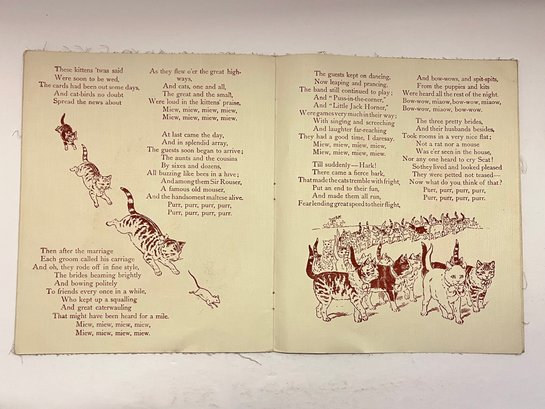 These kittens 'twas said
Were soon to be wed,
The cards had been out some days,
And cat-birds no doubt
Spread the news about
As they flew o'er the great high-
ways,
And cats, one and all,
The great and the small,
Were loud in the kittens' praise,
Miew, miew, miew, miew,
Miew, miew, miew, miew.
At last came the day,
And in splendid array,
The guests soon began to arrive;
The aunts and the cousins
By sixes and dozens,
All buzzing like bees in a hive;
And among them Sir Rouser,
A famous old mouser,
And the handsomest maltese alive.
Purr, purr, purr, purr,
Purr, purr, purr, purr.
Then after the marriage
Each groom called his carriage
And oh, they rode off in fine style,
The brides beaming brightly
And bowing politely
To friends every once in a while,
Who kept up a squalling
And great caterwauling
That might have been heard for a mile.
Miew, miew, miew, miew,
Miew, miew, miew, miew.
The guests kept on dancing,
Now leaping and prancing,
The band still continued to play;
And "Puss-in-the-corner,"
And "Little Jack Horner,"
Were games very much in their way:
With singing and screeching
And laughter far-reaching
They had a good time, I daresay.
Miew, miew, miew, miew,
Miew, miew, miew, miew.
Till suddenly—Hark!
There came a fierce bark,
That made the cats tremble with fright,
Put an end to their fun,
And made them all run,
Fear lending great speed to their flight,
And bow-wows, and spit-spits,
From the puppies and kits
Were heard all the rest of the night.
Bow-wow, miaow, bow-wow, miaow,
Bow-wow, miaow, bow-wow.
The three pretty brides,
And their husbands besides,
Took rooms in a very nice flat;
Not a rat nor a mouse
Was e'er seen in the house,
Nor any one heard to cry Scat!
So they lived and looked pleased
They were petted not teased—
Now what do you think of that?
Purr, purr, purr, purr,
Purr, purr, purr, purr.